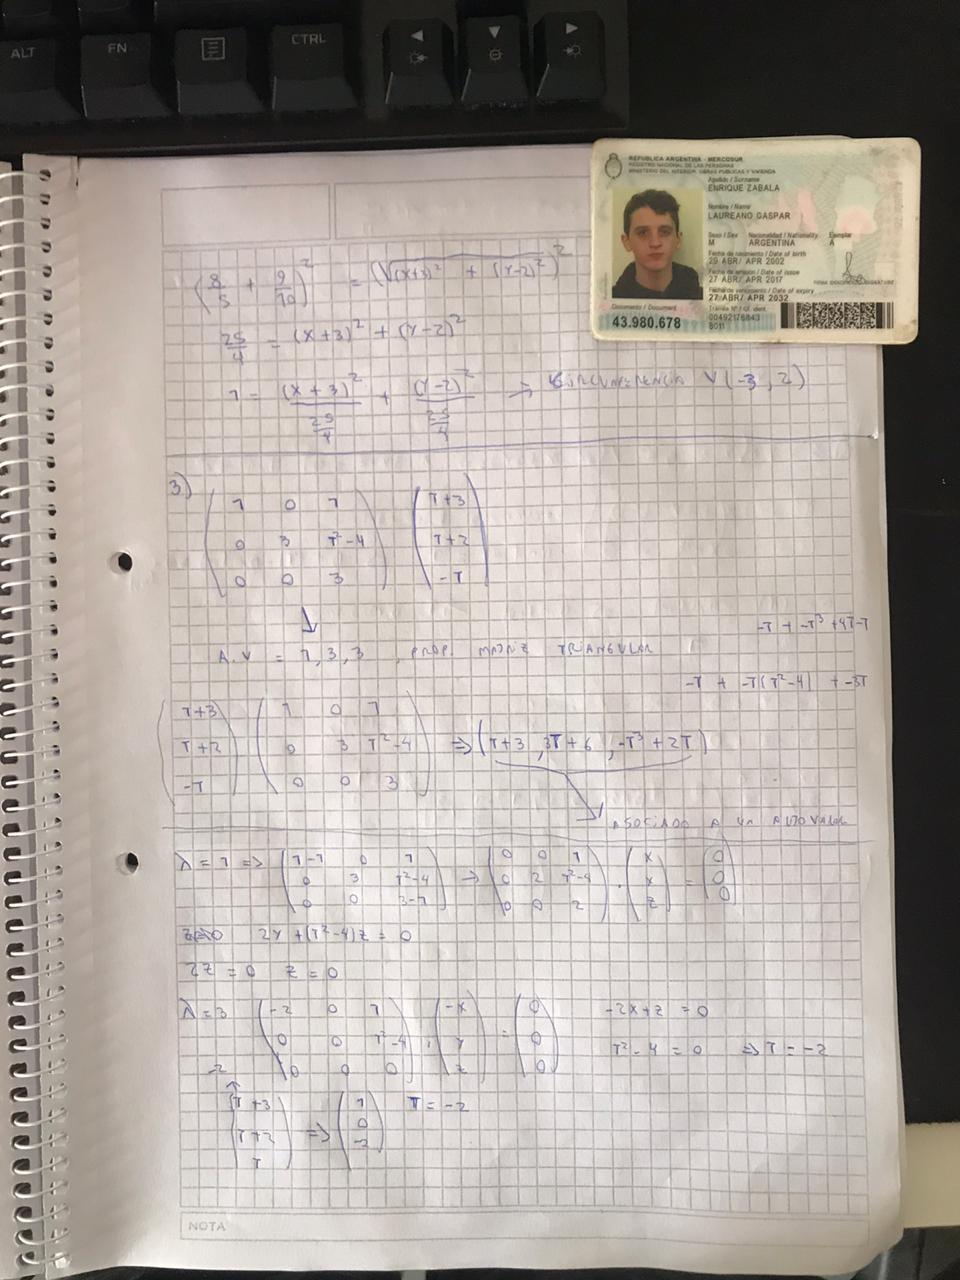 ALT
FN
CTRL
REPUBLICA ARGENTINA - MERCOSUR
REGISTRO NACIONAL DE LAS PERSONAS
MINISTERIO DEL INTERIOR, OBRAS PUBLICAS Y VIVIENDA
Apellido / Surname
ENRIQUE ZABALA
Nombre / Name
LAUREANO GASPAR
Sexo / Sex Nacionalidad / Nationality Ejemplar
M ARGENTINA A
Fecha de nacimiento / Date of birth
29 ABR/ APR 2002
Fecha de emisión / Date of issue
27 ABR/ APR 2017
Fecha de vencimiento / Date of expiry
27 ABR/ APR 2032
Documento / Document
43.980.678
Trámite N° / Of. ident.
00492176843
8011
(8/5 + 9/10)² = (√((x+3)² + (Y-2)²))²
25/4 = (X+3)² + (Y-2)²
1 = (X+3)²/(25/4) + (Y-2)²/(25/4) => CIRCUNFERENCIA V(-3, 2)
3) (1 0 1 (T+3
0 3 T²-4 T+2
0 0 3) -T)
A.V = 1, 3, 3 PROP. MATRIZ TRIANGULAR
-T + -T³ + 4T-T
-T + -T(T²-4) + -3T
(T+3 (1 0 1
T+2 0 3 T²-4 => (T+3, 3T+6, -T³+2T)
-T) 0 0 3)
ASOCIADO A UN AUTOVALOR
λ = 1 => (1-1 0 1 (0 0 1 (X (0
0 3 T²-4 → 0 2 T²-4 · X = 0
0 0 3-1) 0 0 2) Z) 0)
2Y + (T²-4)Z = 0
2Z = 0 Z = 0
λ = 3 (-2 0 1 (-X (0 -2X+Z = 0
0 0 T²-4 · Y = 0 T²-4 = 0 => T = -2
0 0 0) Z) 0)
-2
(T+3 (1 T = -2
T+2 => 0
T) -2)
NOTA